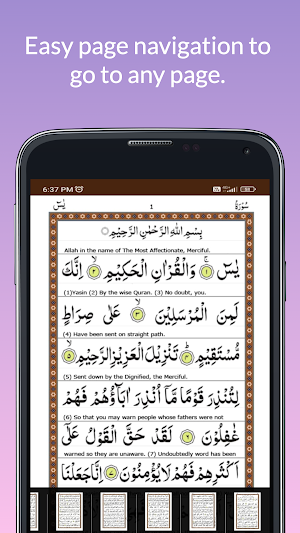 Easy page navigation to
go to any page.
6:37 PM
سُوْرَةُ 1 يٰسٓ
بِسْمِ اللهِ الرَّحْمٰنِ الرَّحِيْمِ
Allah in the name of The Most Affectionate, Merciful.
يٰسٓ ۚ ﴿۱﴾ وَالْقُرْاٰنِ الْحَكِيْمِ ۙ ﴿۲﴾ اِنَّكَ
(1)Yasin (2) By the wise Quran. (3) No doubt, you.
لَمِنَ الْمُرْسَلِيْنَ ۙ ﴿۳﴾ عَلٰى صِرَاطٍ
(4) Have been sent on straight path.
مُّسْتَقِيْمٍ ؕ تَنْزِيْلَ الْعَزِيْزِ الرَّحِيْمِ ۙ ﴿۵﴾
(5) Sent down by the Dignified, the Merciful.
لِتُنْذِرَ قَوْمًا مَّاۤ اُنْذِرَ اٰبَآؤُهُمْ فَهُمْ
(6) So that you may warn people whose fathers were not
غٰفِلُوْنَ ﴿۶﴾ لَقَدْ حَقَّ الْقَوْلُ عَلٰۤى
warned so they are unaware. (7) Undoubtedly word has been
اَكْثَرِهِمْ فَهُمْ لَا يُؤْمِنُوْنَ ﴿۷﴾ اِنَّا جَعَلْنَا